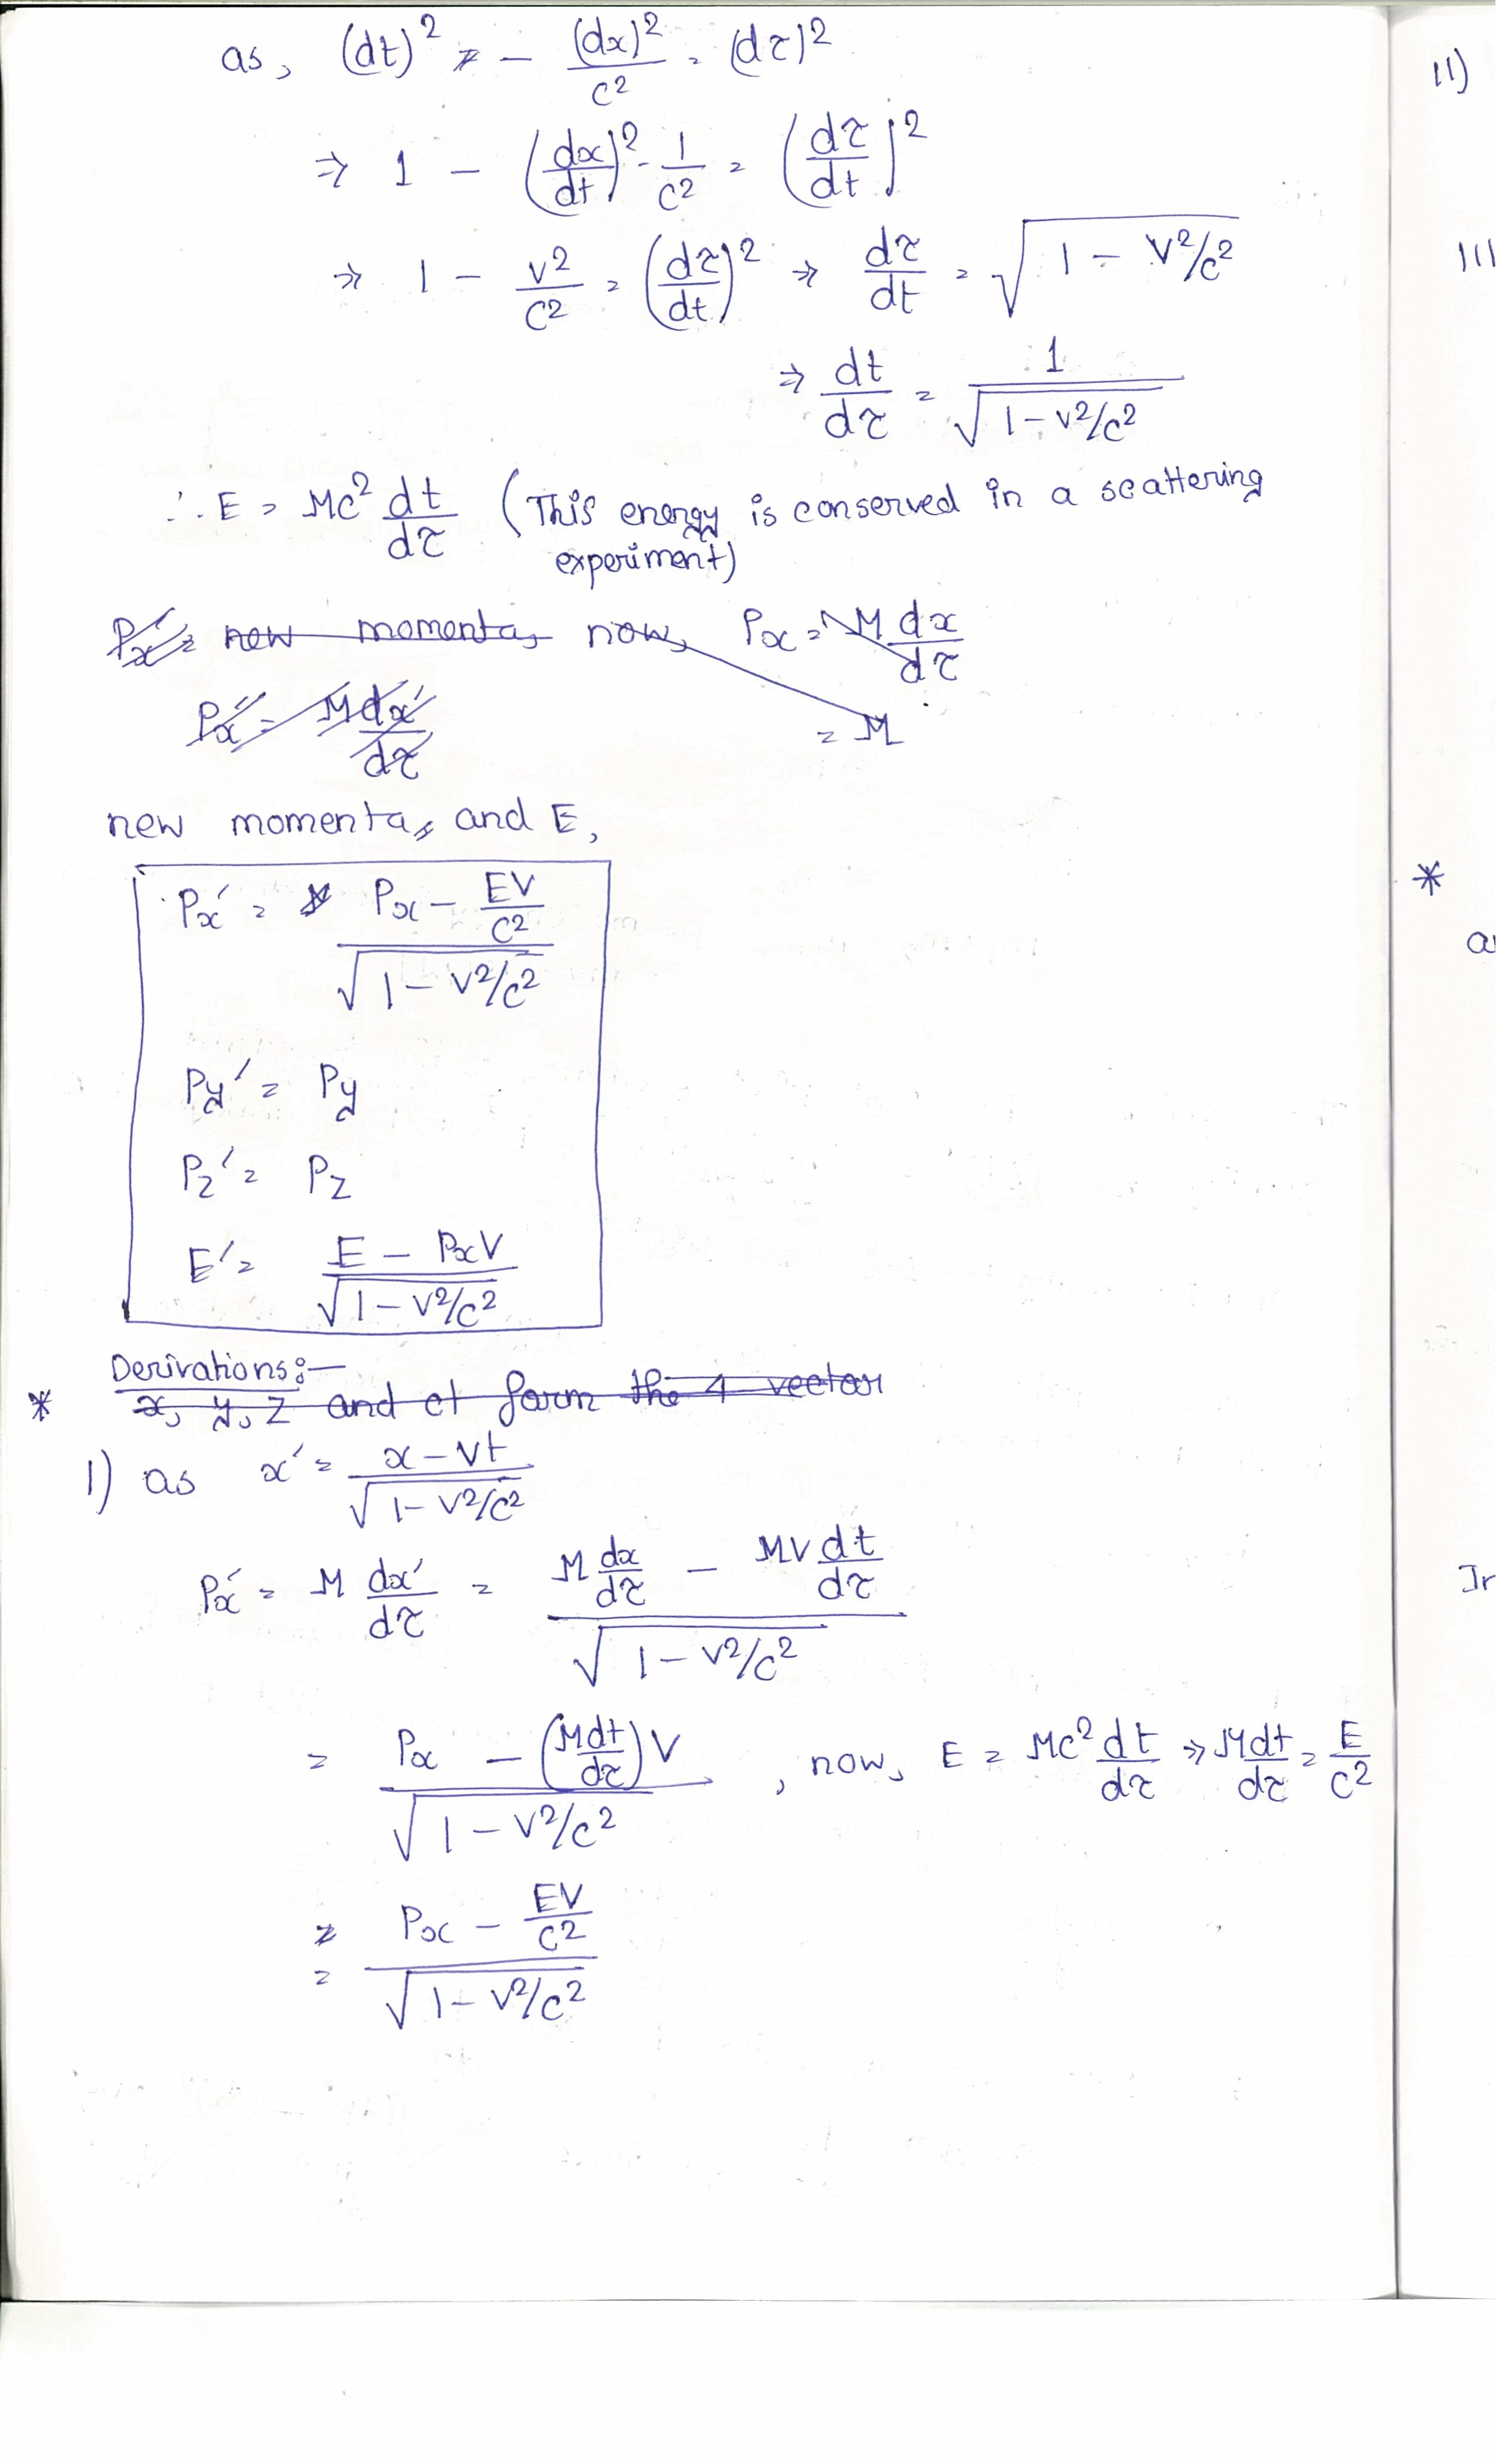 as, (dt)² - (dx)²/c² = (dτ)²
⇒ 1 - (dx/dt)² · 1/c² = (dτ/dt)²
⇒ 1 - v²/c² = (dτ/dt)² ⇒ dτ/dt = √(1 - v²/c²)
⇒ dt/dτ = 1/√(1-v²/c²)
∴ E = Mc² dt/dτ (This energy is conserved in a scattering
experiment)
Px' = new momenta, now, Px = M dx/dτ
Px' = M dx'/dτ = M
new momenta, and E,
Px' = (Px - EV/c²)/√(1 - v²/c²)
Py' = Py
Pz' = Pz
E' = (E - PxV)/√(1 - v²/c²)
Derivations:-
* x, y, z and ct form the 4 vector
1) as x' = (x - vt)/√(1 - v²/c²)
Px' = M dx'/dτ = (M dx/dτ - MV dt/dτ)/√(1 - v²/c²)
= (Px - (M dt/dτ)V)/√(1 - v²/c²) , now, E = Mc² dt/dτ ⇒ M dt/dτ = E/c²
= (Px - EV/c²)/√(1 - v²/c²)
11)
111
*
Ir